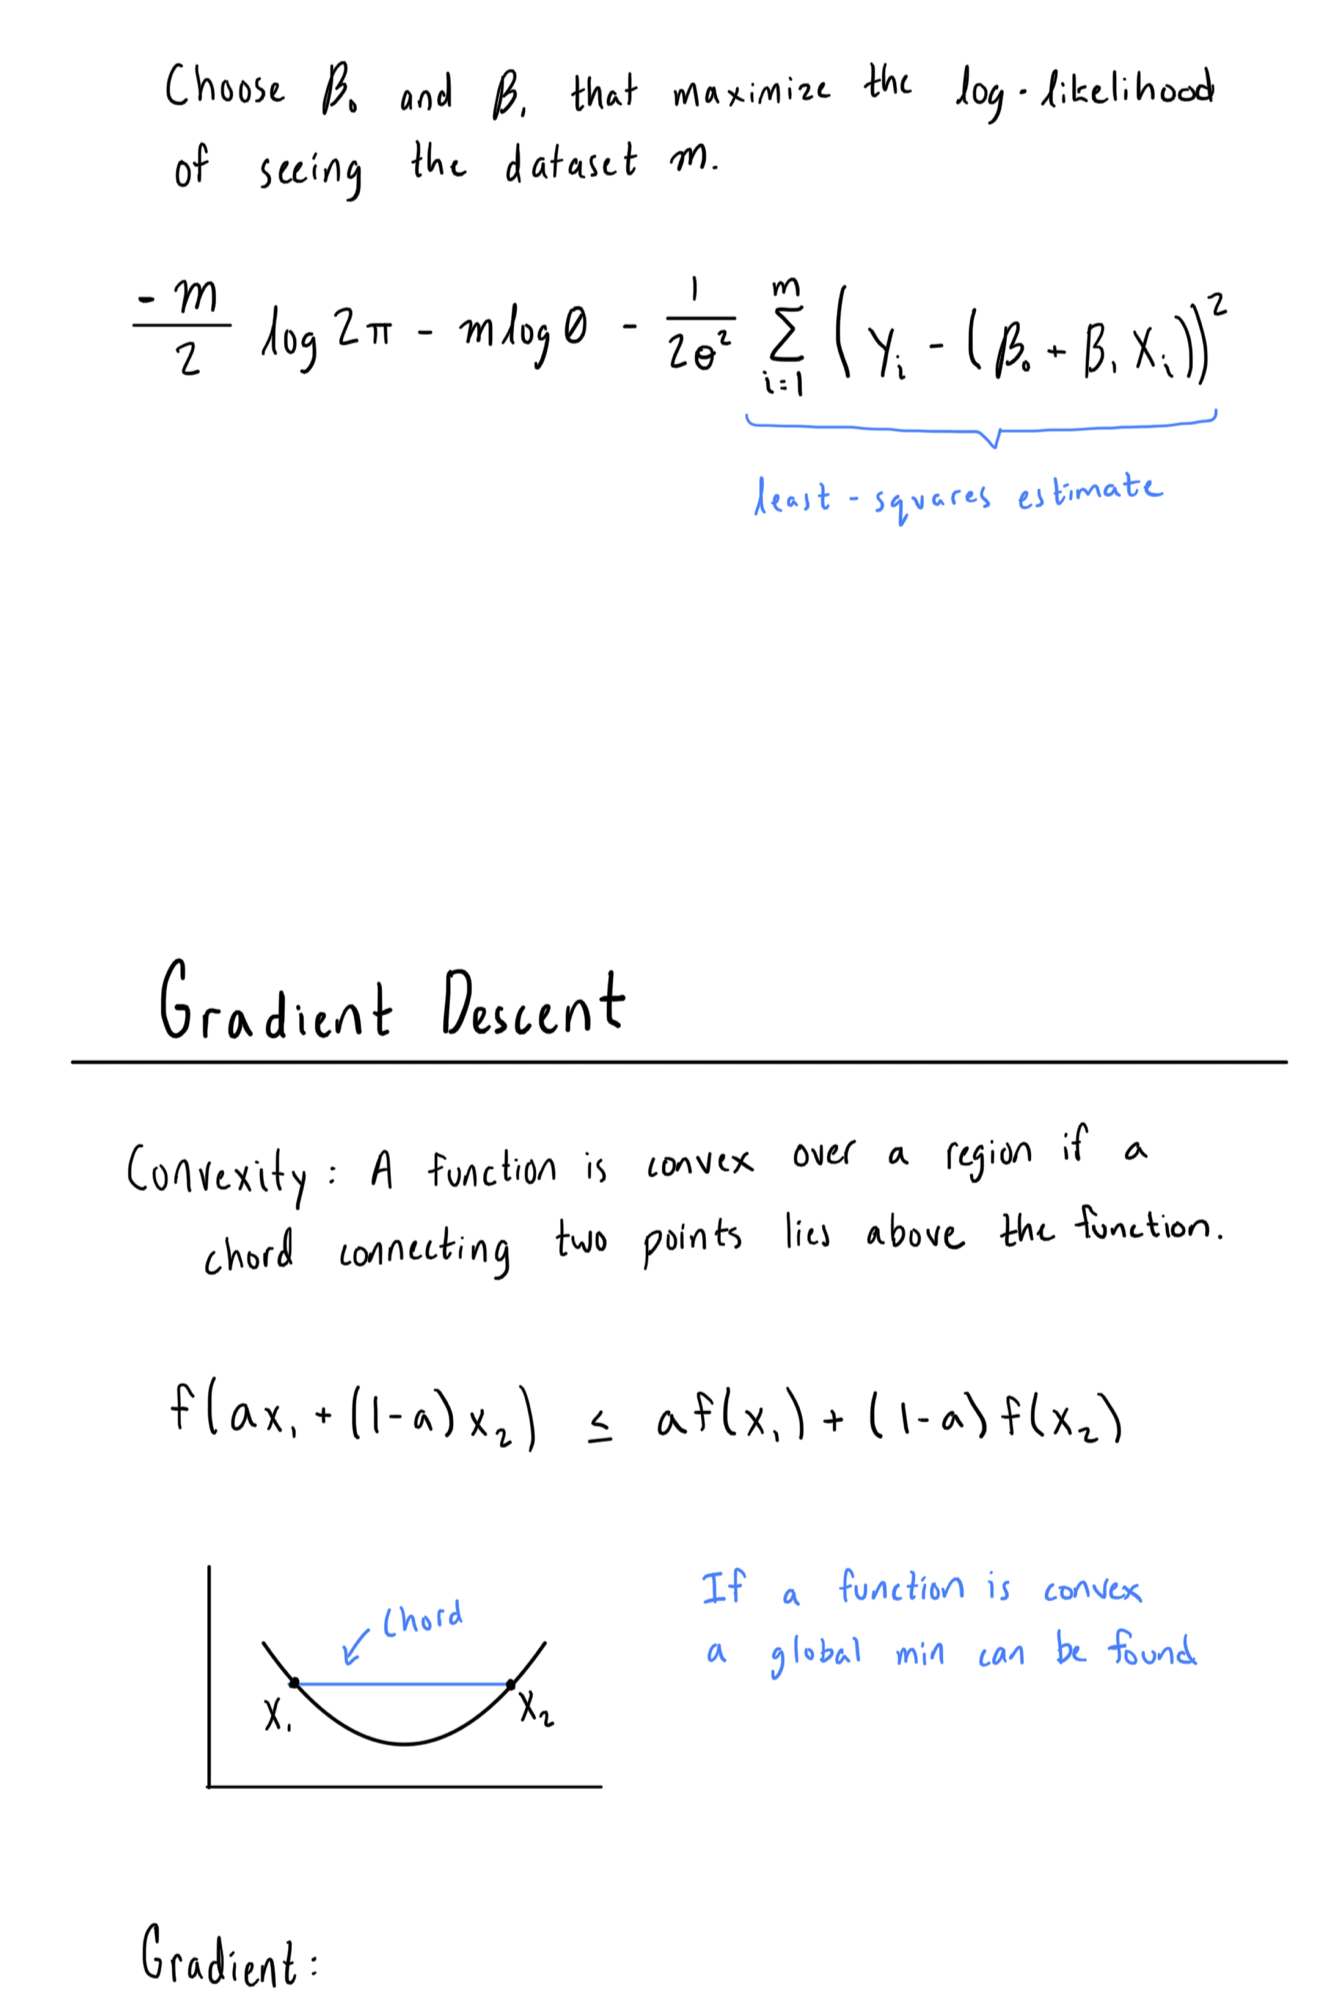 Choose β₀ and β₁ that maximize the log-likelihood
of seeing the dataset m.
-m/2 log 2π - m log θ - 1/2θ² Σ_{i=1}^{m} (Yᵢ - (β₀ + β₁ Xᵢ))²
least-squares estimate
Gradient Descent
Convexity: A function is convex over a region if a
chord connecting two points lies above the function.
f(ax₁ + (1-a)x₂) ≤ af(x₁) + (1-a)f(x₂)
If a function is convex
a global min can be found
chord
X₁
X₂
Gradient: